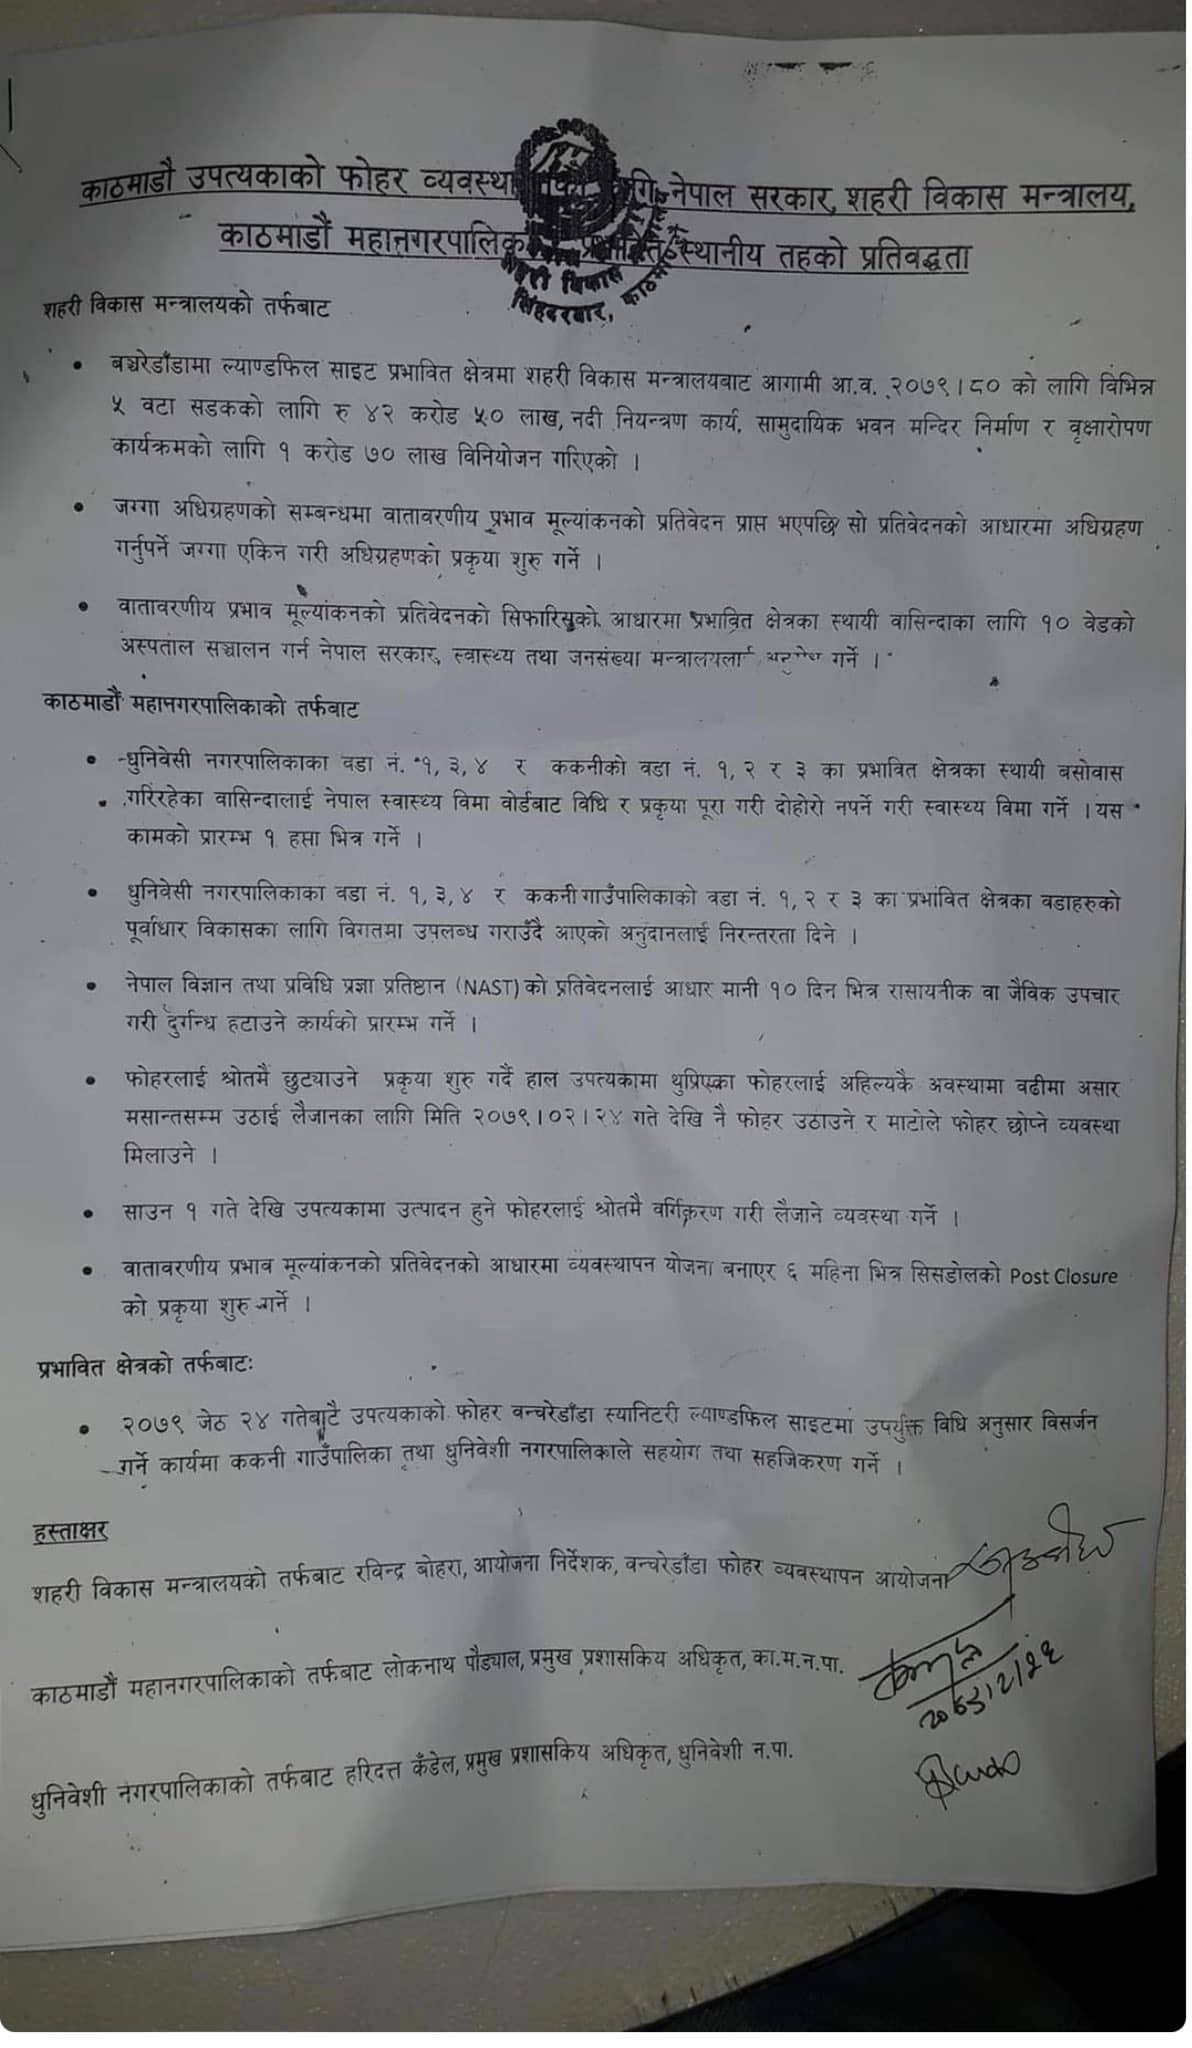 काठमाडौं उपत्यकाको फोहर व्यवस्था नेपाल सरकार, शहरी विकास मन्त्रालय,
काठमाडौं महानगरपालिका प्रभावित स्थानीय तहको प्रतिवद्धता
शहरी विकास
सिंहदरबार, काठमा
शहरी विकास मन्त्रालयको तर्फबाट
• बञ्चरेडाँडामा ल्याण्डफिल साइट प्रभावित क्षेत्रमा शहरी विकास मन्त्रालयबाट आगामी आ.व. २०७९।८० को लागि विभिन्न
५ वटा सडकको लागि रु ४२ करोड ५० लाख, नदी नियन्त्रण कार्य, सामुदायिक भवन मन्दिर निर्माण र वृक्षारोपण
कार्यक्रमको लागि १ करोड ७० लाख विनियोजन गरिएको ।
• जग्गा अधिग्रहणको सम्बन्धमा वातावरणीय प्रभाव मूल्यांकनको प्रतिवेदन प्राप्त भएपछि सो प्रतिवेदनको आधारमा अधिग्रहण
गर्नुपर्ने जग्गा एकिन गरी अधिग्रहणको प्रकृया शुरु गर्ने ।
• वातावरणीय प्रभाव मूल्यांकनको प्रतिवेदनको सिफारिसको आधारमा प्रभावित क्षेत्रका स्थायी वासिन्दाका लागि १० वेडको
अस्पताल सञ्चालन गर्न नेपाल सरकार, स्वास्थ्य तथा जनसंख्या मन्त्रालयलाई गर्ने ।
काठमाडौं महानगरपालिकाको तर्फबाट
• धुनिवेसी नगरपालिकाका वडा नं. १, ३, ४ र ककनीको वडा नं. १, २ र ३ का प्रभावित क्षेत्रका स्थायी बसोवास
गरिरहेका वासिन्दालाई नेपाल स्वास्थ्य विमा वोर्डबाट विधि र प्रकृया पूरा गरी दोहोरो नपर्ने गरी स्वास्थ्य विमा गर्ने । यस
कामको प्रारम्भ १ हप्ता भित्र गर्ने ।
• धुनिवेसी नगरपालिकाका वडा नं. १, ३, ४ र ककनी गाउँपालिकाको वडा नं. १, २ र ३ का प्रभावित क्षेत्रका वडाहरुको
पूर्वाधार विकासका लागि विगतमा उपलब्ध गराउँदै आएको अनुदानलाई निरन्तरता दिने ।
• नेपाल विज्ञान तथा प्रविधि प्रज्ञा प्रतिष्ठान (NAST) को प्रतिवेदनलाई आधार मानी १० दिन भित्र रासायनीक वा जैविक उपचार
गरी दुर्गन्ध हटाउने कार्यको प्रारम्भ गर्ने ।
• फोहरलाई श्रोतमै छुट्याउने प्रकृया शुरु गर्दै हाल उपत्यकामा थुप्रिएका फोहरलाई अहिल्यकै अवस्थामा वढीमा असार
मसान्तसम्म उठाई लैजानका लागि मिति २०७९।०२।२४ गते देखि नै फोहर उठाउने र माटोले फोहर छोप्ने व्यवस्था
मिलाउने ।
• साउन १ गते देखि उपत्यकामा उत्पादन हुने फोहरलाई श्रोतमै वर्गिकरण गरी लैजाने व्यवस्था गर्ने ।
• वातावरणीय प्रभाव मूल्यांकनको प्रतिवेदनको आधारमा व्यवस्थापन योजना बनाएर ६ महिना भित्र सिसडोलको Post Closure
को प्रकृया शुरु गर्ने ।
प्रभावित क्षेत्रको तर्फबाटः
• २०७९ जेठ २४ गतेबाटै उपत्यकाको फोहर वन्चरेडाँडा स्यानिटरी ल्याण्डफिल साइटमा उपर्युक्त विधि अनुसार विसर्जन
गर्ने कार्यमा ककनी गाउँपालिका तथा धुनिवेशी नगरपालिकाले सहयोग तथा सहजिकरण गर्ने ।
हस्ताक्षर
शहरी विकास मन्त्रालयको तर्फबाट रविन्द्र बोहरा, आयोजना निर्देशक, वन्चरेडाँडा फोहर व्यवस्थापन आयोजना
काठमाडौं महानगरपालिकाको तर्फबाट लोकनाथ पौड्याल, प्रमुख प्रशासकिय अधिकृत, का.म.न.पा.
धुनिवेशी नगरपालिकाको तर्फबाट हरिदत्त कँडेल, प्रमुख प्रशासकिय अधिकृत, धुनिवेशी न.पा.